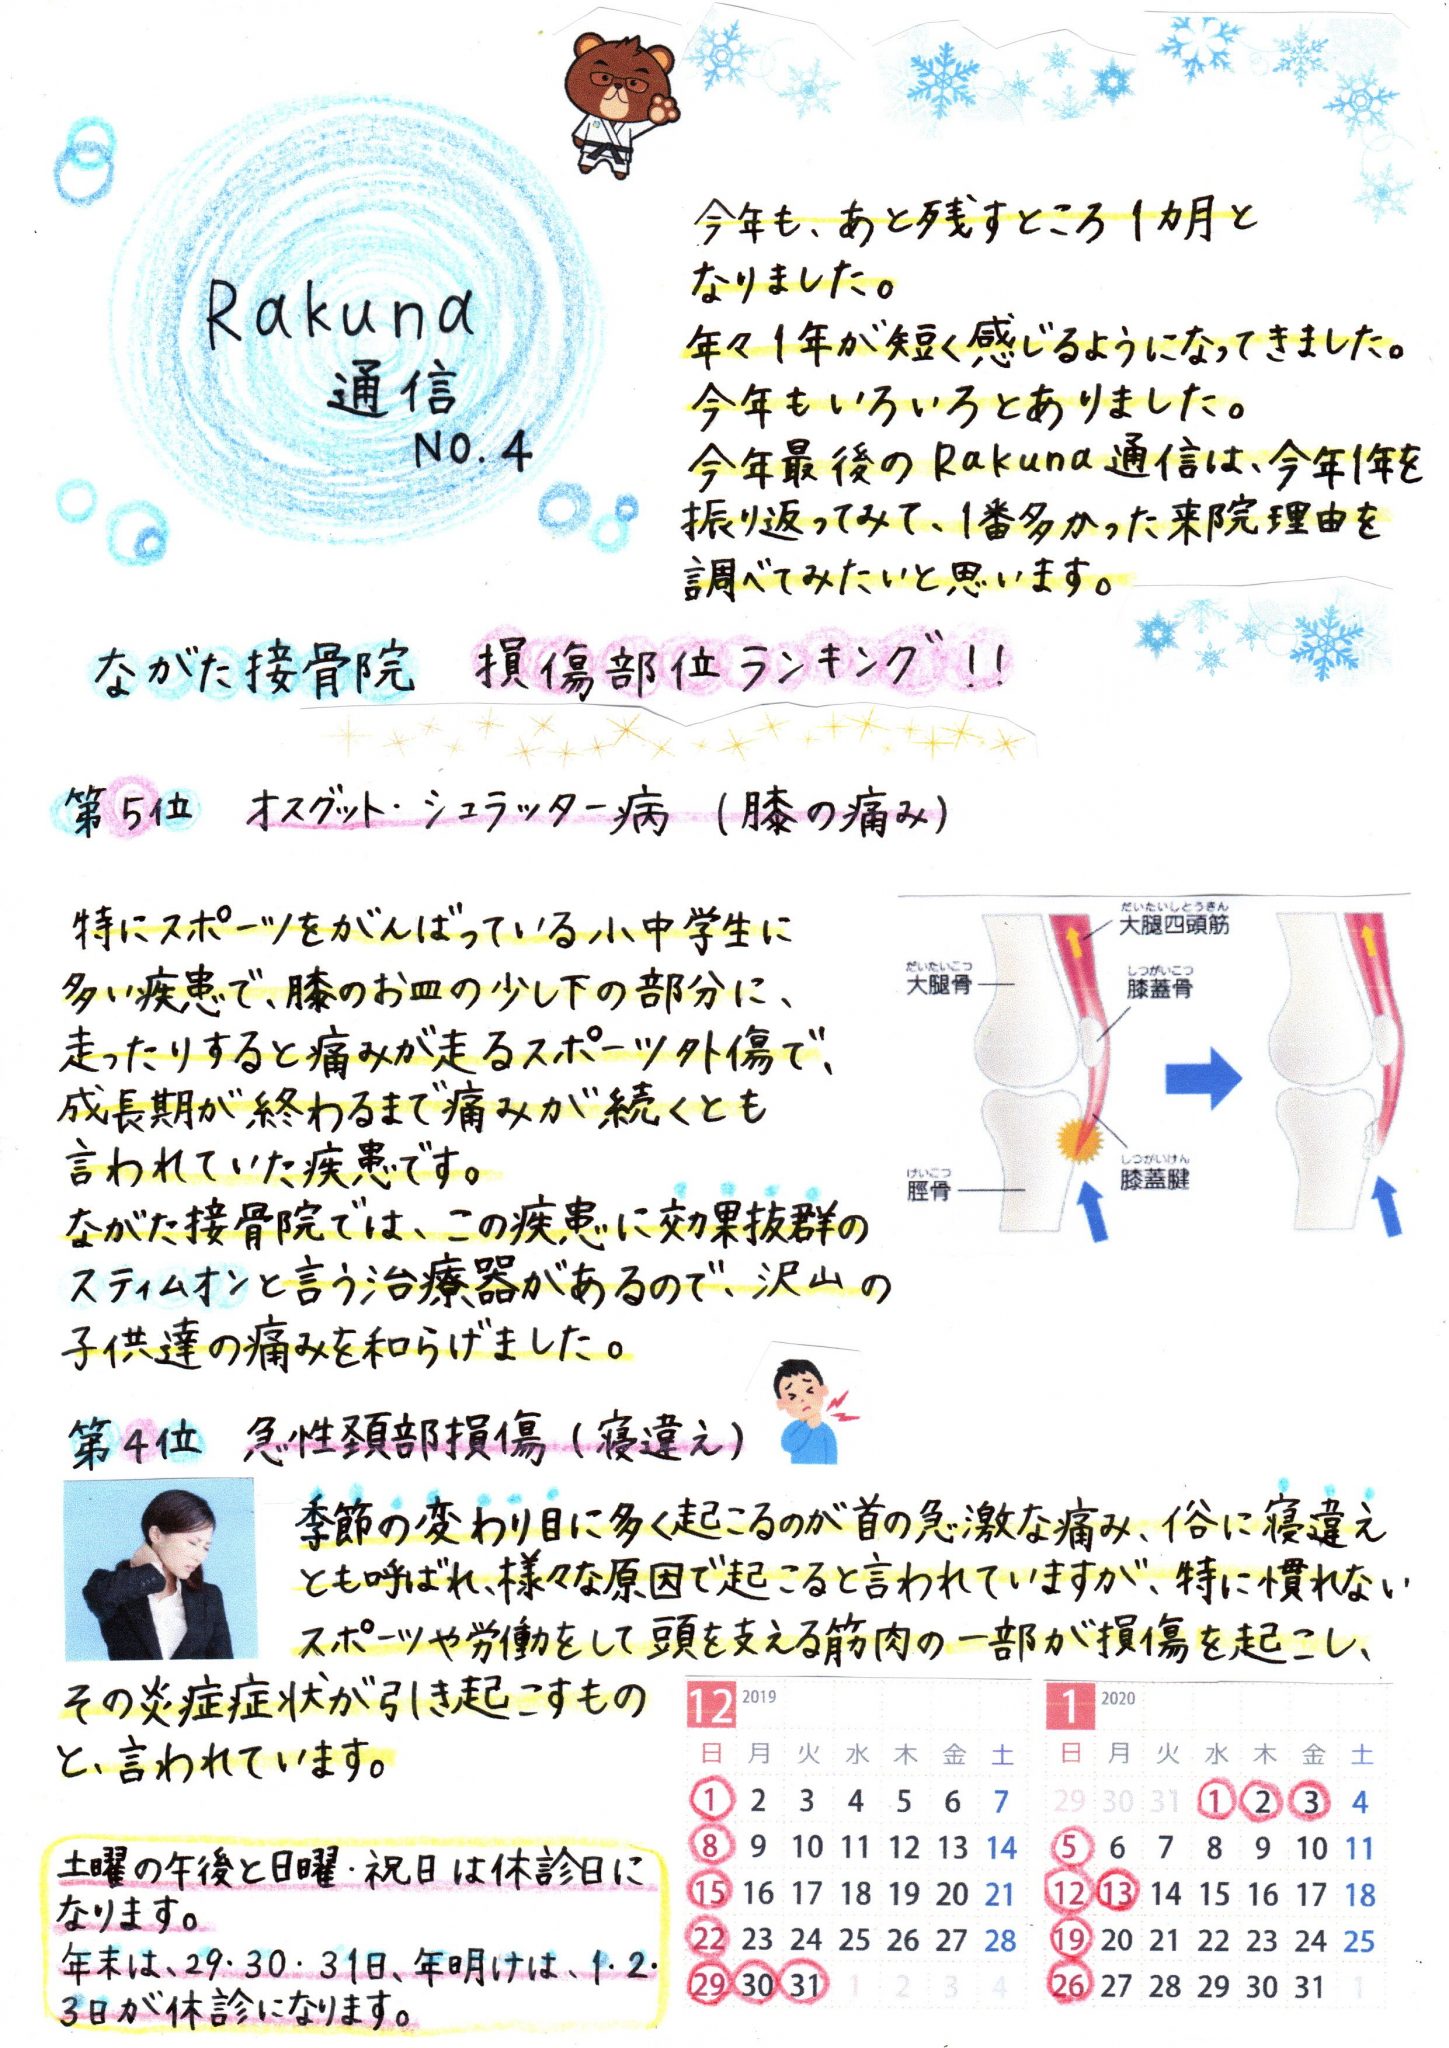 Rakuna
通信
NO.4
今年も、あと残すところ1カ月と
なりました。
年々1年が短く感じるようになってきました。
今年もいろいろとありました。
今年最後のRakuna通信は、今年1年を
振り返ってみて、1番多かった来院理由を
調べてみたいと思います。
ながた接骨院 損傷部位ランキング!!
第5位 オスグット・シュラッター病 (膝の痛み)
特にスポーツをがんばっている小中学生に
多い疾患で、膝のお皿の少し下の部分に、
走ったりすると痛みが走るスポーツ外傷で、
成長期が終わるまで痛みが続くとも
言われていた疾患です。
ながた接骨院では、この疾患に効果抜群の
スティムオンと言う治療器があるので、沢山の
子供達の痛みを和らげました。
だいたいしとうきん
大腿四頭筋
だいたいこつ
大腿骨
しつがいこつ
膝蓋骨
けいこつ
脛骨
しつがいけん
膝蓋腱
第4位 急性頚部損傷(寝違え)
季節の変わり目に多く起こるのが首の急激な痛み、俗に寝違え
とも呼ばれ、様々な原因で起こると言われていますが、特に慣れない
スポーツや労働をして頭を支える筋肉の一部が損傷を起こし、
その炎症症状が引き起こすもの
と、言われています。
土曜の午後と日曜・祝日は休診日に
なります。
年末は、29・30・31日、年明けは、1・2・
3日が休診になります。
12 2019
日 月 火 水 木 金 土
1 2 3 4 5 6 7
8 9 10 11 12 13 14
15 16 17 18 19 20 21
22 23 24 25 26 27 28
29 30 31 1 2 3 4
1 2020
日 月 火 水 木 金 土
29 30 31 1 2 3 4
5 6 7 8 9 10 11
12 13 14 15 16 17 18
19 20 21 22 23 24 25
26 27 28 29 30 31 1